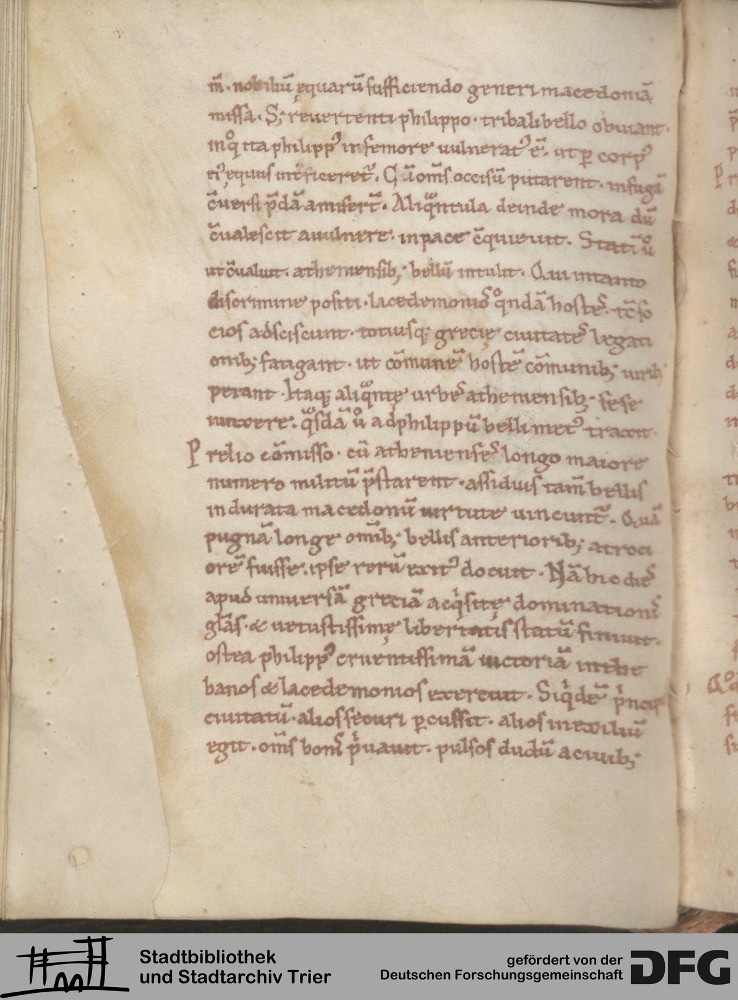 m̃. nobiliũ equarũ sufficiendo generi macedoniã
missa. S; revertenti philippo. triballi bello obviant.
in qͦ ita philippꝰ in femore vulneratꝰ ẽ. ut ꝑ corpꝰ
eiꝰ equus int̃ficeret᷑. Cũ om̃s occisũ putarent. in fugã
c̃versi p̃dã amiser̃t. Aliqᵃntula deinde mora dũ
c̃valescit a vulnere. in pace c̃quievit. Stati uͦ
ut c̃valuit. atheniensib; bellũ intulit. Qui in tanto
discrimine positi. lacedemonioˢ qͦndã hosteˢ. tc̃ so
cios adsciscunt. totiusq; grecię civitateˢ legati
onib; fatigant. ut com̃unẽ hostẽ com̃unib; virib;
petant. Itaq; aliqᵃntę urbeˢ atheniensib; se se
iunxere. qᵃsdã uͦ ad philippũ belli metꝰ traxit.
Prelio com̃isso. cũ athenienseˢ longo maiore
numero militũ p̃starent. assiduis tam̃ bellis
indurata macedonũ virtute vincunt᷑. Quã
pugnã longe om̃ib; bellis anteriorib; atroci
orẽ fuisse. ipse rerũ exitꝰ docuit. Nã hic dieˢ
apud universã greciã acqⁱsitę dominationiˢ
gl̃ãs. & vetustissimę libertatis statũ finivit.
ostea philippꝰ cruentissimã victoriã in the
banos & lacedemonios exercuit. Siqⁱdẽ pⁱncip̃
civitatũ. alios securi ꝑcussit. alios in exiliũ
egit. om̃s boniˢ pⁱvavit. pulsos dudũ a civib;
Stadtbibliothek
und Stadtarchiv Trier
gefördert von der
Deutschen Forschungsgemeinschaft
DFG